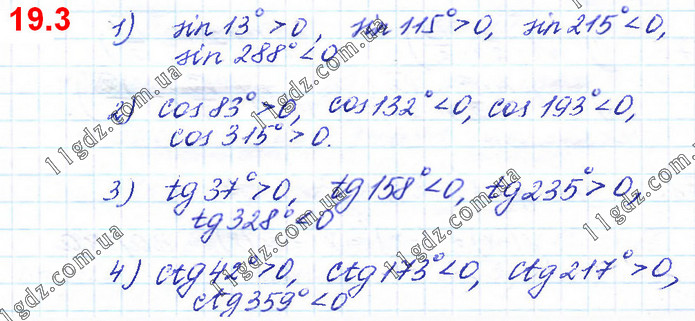 19.3
1) sin 13° > 0, sin 115° > 0, sin 215° < 0,
sin 288° < 0
2) cos 83° > 0, cos 132° < 0, cos 193° < 0,
cos 315° > 0.
3) tg 37° > 0, tg 158° < 0, tg 235° > 0,
tg 328° < 0
4) ctg 42° > 0, ctg 173° < 0, ctg 217° > 0,
ctg 359° < 0
11gdz.com.ua
11gdz.com.ua
11gdz.com.ua
11gdz.com.ua
11gdz.com.ua
11gdz.com.ua